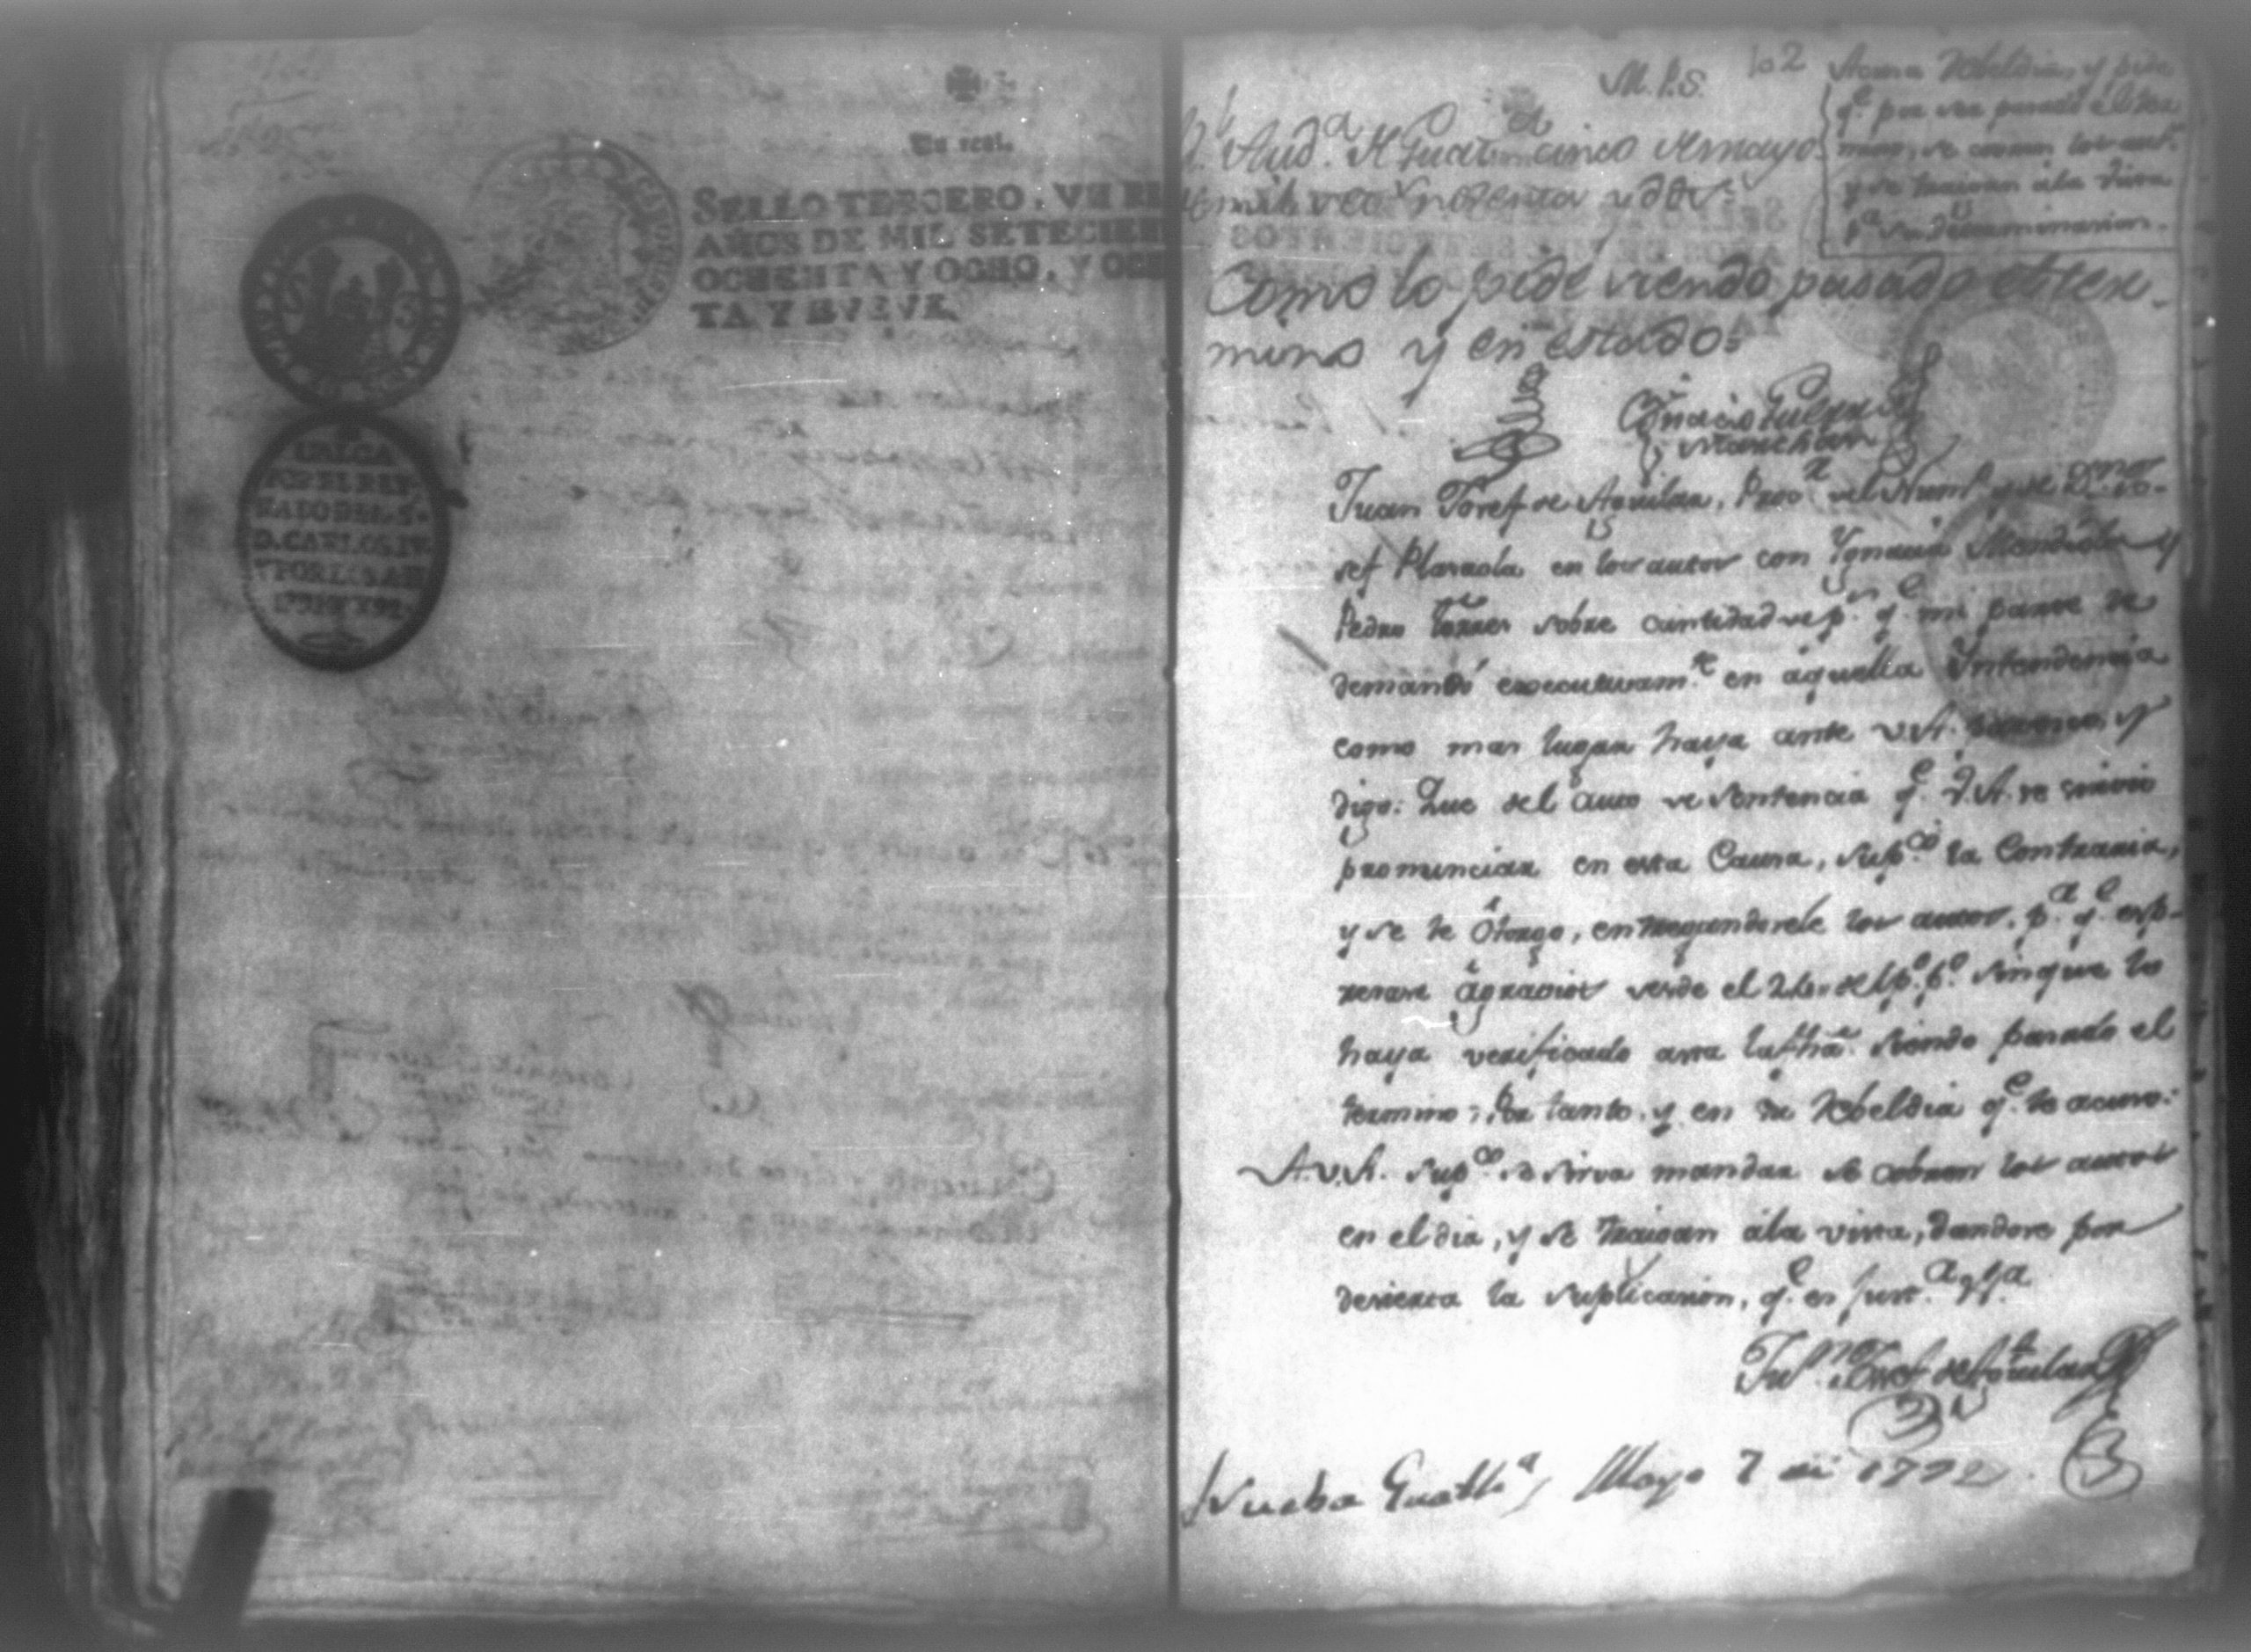 Un real.
SELLO TERCERO, VN RE
AÑOS DE MIL SETECIEN
OCHENTA Y OCHO, Y OCH
TA Y NVEVE
VALGA
POR EL REY-
NADO DEL S.
D. CARLOS IV
Y POR LOS AÑ
M. P. S.
102
Acusa Rebeldia, y pide
q.e por ser pasado el ter
mino, se cobren los aut.s
y se traigan ála vista
p.a su determinacion.
R.l Aud.a de Guat.a cinco de mayo
de mil set.s nobenta y dos.
Como lo pide siendo pasado el ter-
mino y en estado:
Ignacio Guerra
Marchan
Juan Josef de Aguilar, Proc.r del Num.o y de D.n Jo-
sef Plazaola en los autos con Ygnacio Mendiola y
Pedro Torres sobre cantidad de p.s q.e mi parte de
demandó executivam.te en aquella Yntendencia
como mas lugar haya ante V.A. y
digo: Que del auto de Sentencia q.e V.A. se sirvio
pronunciar en esta Causa, sup.co la Contraria,
y se le otorgo, entregandosele los autos, p.a q.e exp-
resare agravios desde el 24 del p.o p.o sin que lo
haya verificado asta la fha. siendo pasado el
termino; Por tanto, y en su Rebeldia q.e le acuso:
A.V.A. sup.co se sirva mandar se cobren los autos
en el dia, y se traigan ála vista, dandose por
desierta la suplicacion, q.e es just.a &.a
Ju.n Josef de Aguilar
Nueba Guath.a Mayo 7 de 1792